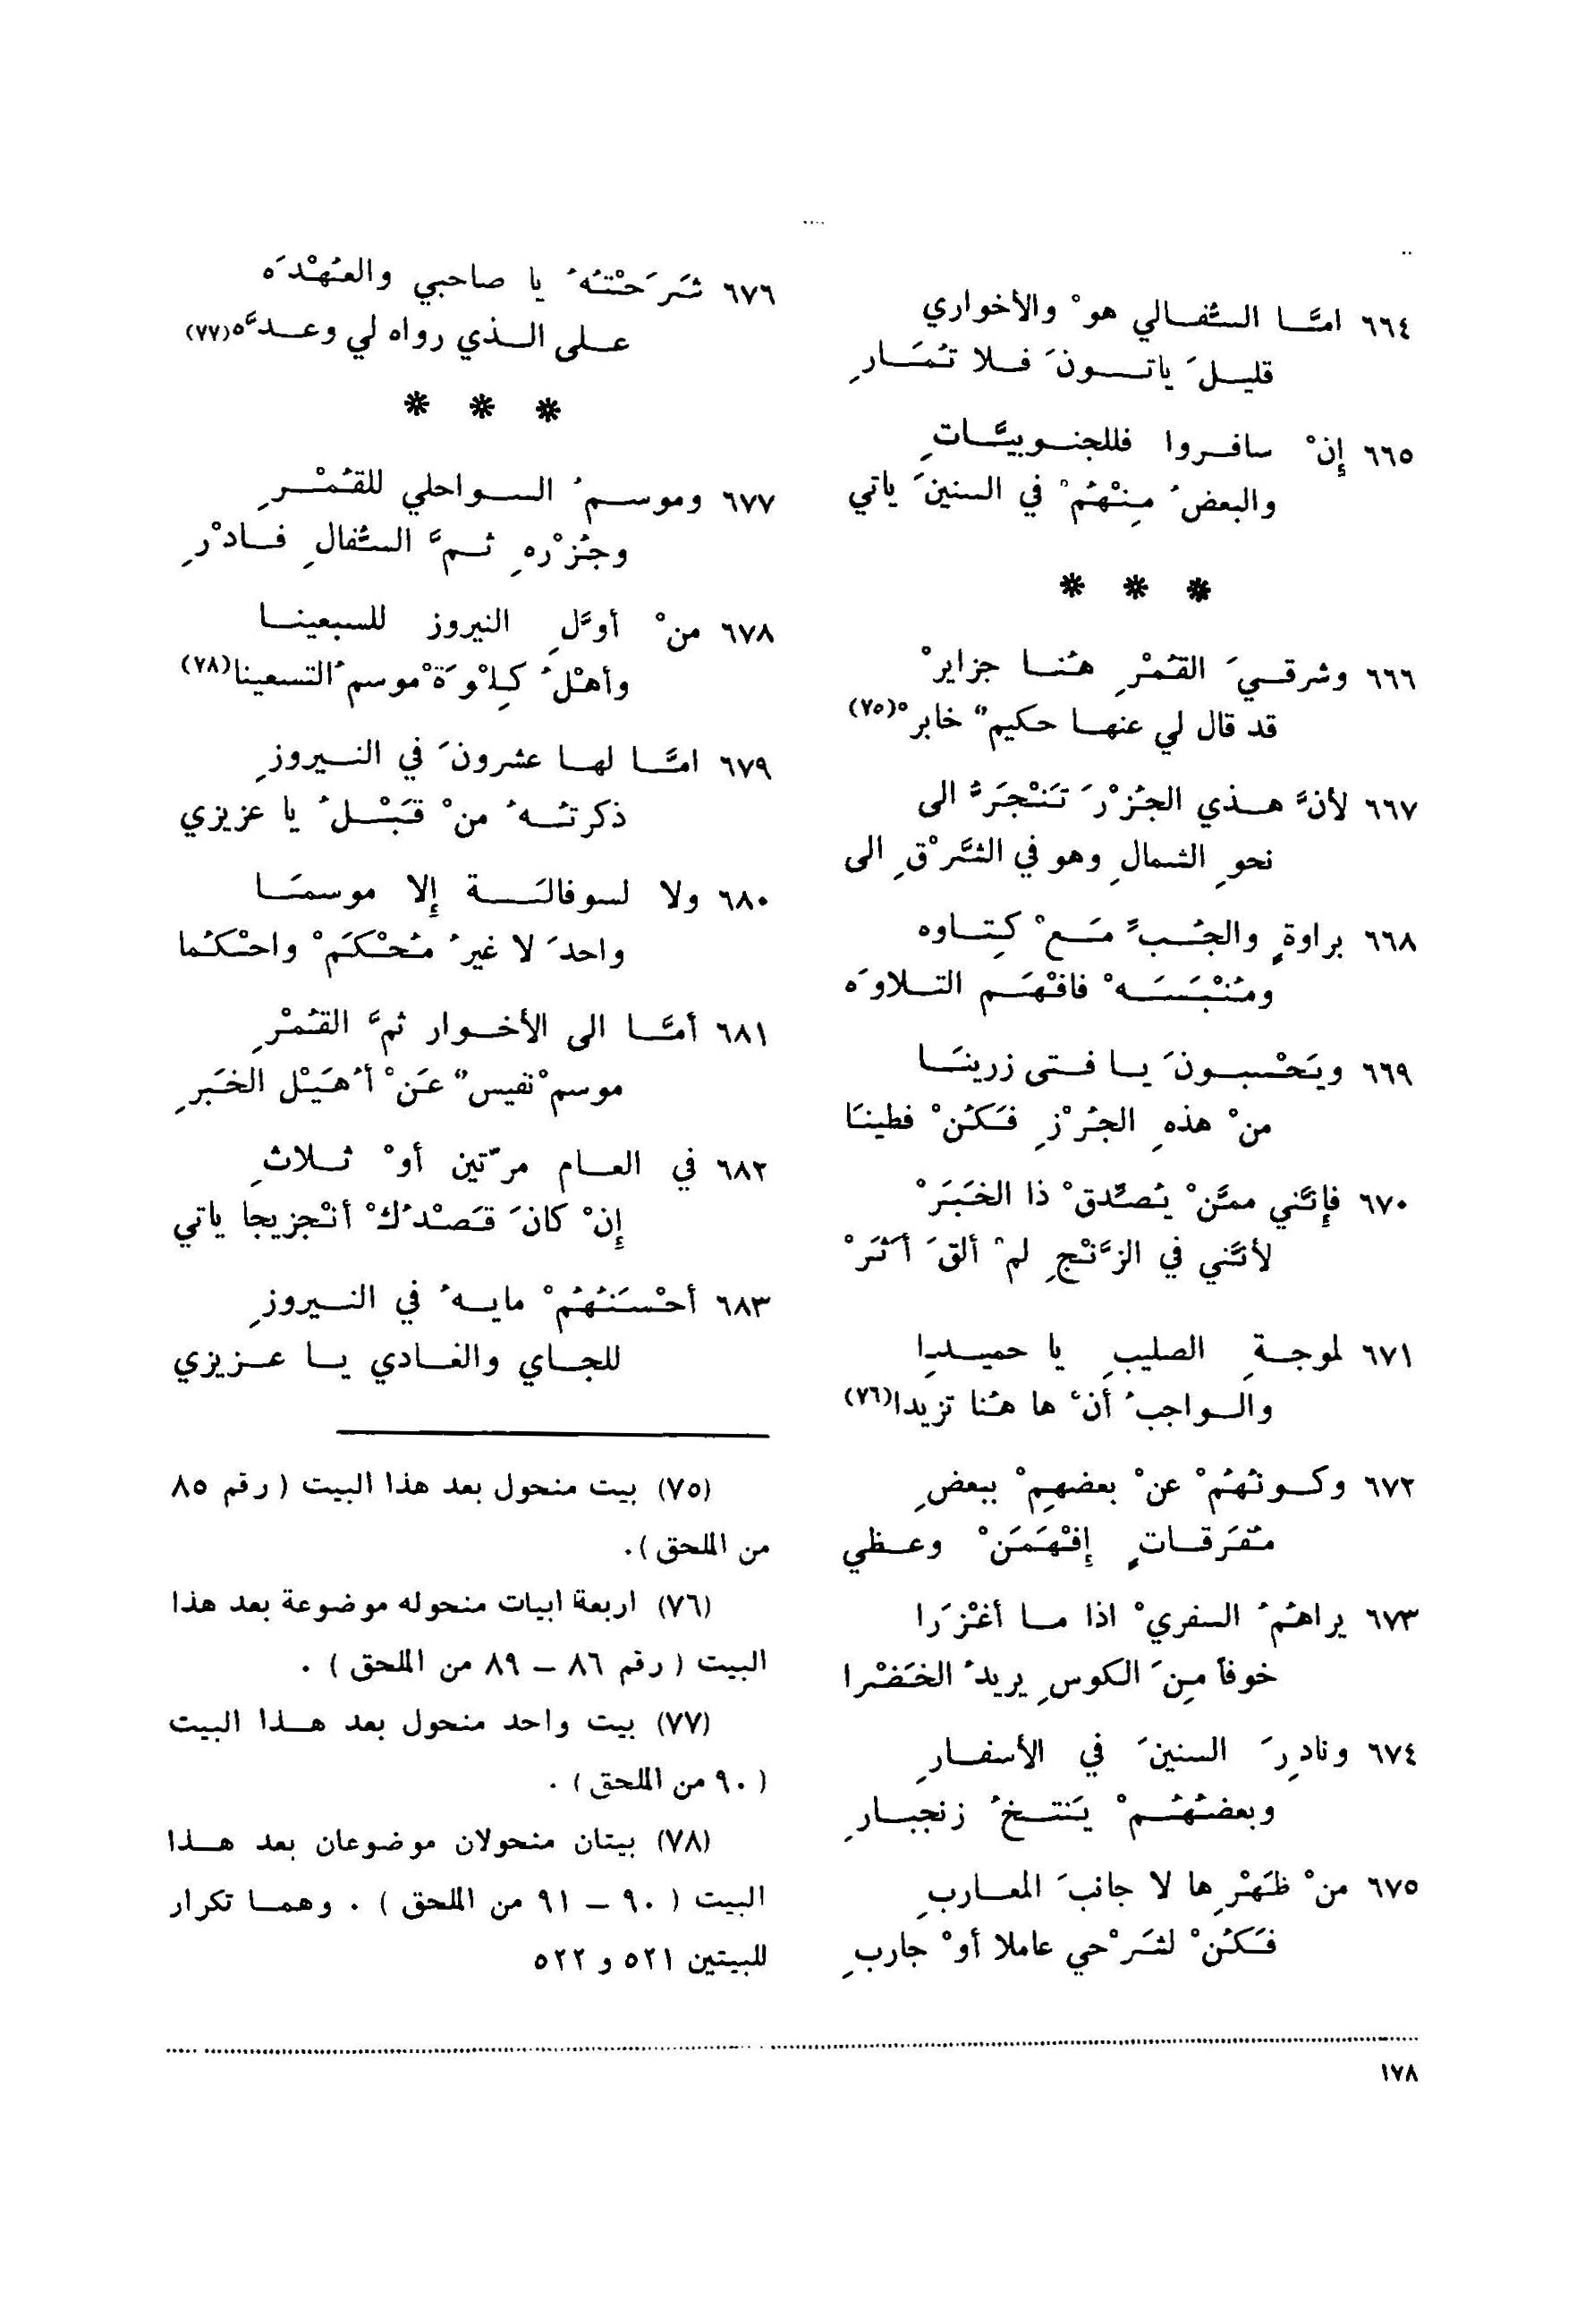 ٦٦٤ امَّا السُّفالي هوْ والأخواري
قليلَ ياتونَ فلا تُمَارِ
٦٦٥ إنْ سافروا فللجنوبيَّاتِ
والبعضُ مِنْهُمْ في السنينَ ياتي
* * *
٦٦٦ وشرقيَ القُمْرِ هُنا جزايرْ
قد قال لي عنها حكيمٌ خابرْ(٧٥)
٦٦٧ لأنَّ هذي الجُزْرَ تَنْجَرُّ الى
نحوِ الشمالِ وهو في الشَّرْقِ الى
٦٦٨ براوةٍ والجُبِّ مَعْ كِتاوه
ومُنْبَسَهْ فافْهَم التلاوَه
٦٦٩ ويَحْسبونَ يا فتى زرينَا
منْ هذهِ الجُرْزِ فَكُنْ فطينَا
٦٧٠ فإنَّني ممَّنْ يُصدِّقْ ذا الخَبَرْ
لأنَّني في الزَّنْجِ لمْ ألقَ أثَرْ
٦٧١ لموجةِ الصليبِ يا حميدا
والواجبُ أنْ ها هُنا تزيدا(٧٦)
٦٧٢ وكونُهُمْ عنْ بعضهِمْ ببعضِ
مُفَرقاتٍ إفْهَمَنْ وعظي
٦٧٣ يراهُمُ السفريْ اذا ما أغْزَرا
خوفاً مِنَ الكوسِ يريدُ الخَضْرا
٦٧٤ ونادِرَ السنينَ في الأسفارِ
وبعضُهُمْ يَنتخُ زنجبارِ
٦٧٥ منْ ظَهْرِها لا جانبَ المعاربِ
فَكُنْ لشَرْحي عاملا أوْ جاربِ
٦٧٦ شَرَحْتُهُ يا صاحبي والعُهْدَه
على الذي رواه لي وعدَّه(٧٧)
* * *
٦٧٧ وموسمُ السواحلي للقُمْرِ
وجُزْرهِ ثمَّ السُّفالِ فادْرِ
٦٧٨ منْ أوَّلِ النيروز للسبعينا
وأهْلُ كِلْوَةْ موسمُ التسعينا(٧٨)
٦٧٩ امَّا لها عشرونَ في النيروزِ
ذكرتُهُ منْ قَبْلُ يا عزيزي
٦٨٠ ولا لسوفالَة إلا موسمَا
واحدَ لا غيرُ مُحْكَمْ واحْكُما
٦٨١ أمَّا الى الأخوار ثمَّ القُمْرِ
موسمْ نفيسٌ عَنْ أُهَيْل الخَبرِ
٦٨٢ في العام مرّتين أوْ ثلاثِ
إنْ كانَ قَصْدُكْ أنْجزيجا ياتي
٦٨٣ أحْسَنُهُمْ مايهُ في النيروزِ
للجاي والغادي يا عزيزي
(٧٥) بيت منحول بعد هذا البيت ( رقم ٨٥
من الملحق ).
(٧٦) اربعة ابيات منحوله موضوعة بعد هذا
البيت ( رقم ٨٦ – ٨٩ من الملحق ) .
(٧٧) بيت واحد منحول بعد هذا البيت
( ٩٠ من الملحق ) .
(٧٨) بيتان منحولان موضوعان بعد هذا
البيت ( ٩٠ – ٩١ من الملحق ) . وهما تكرار
للبيتين ٥٢١ و ٥٢٢
١٧٨